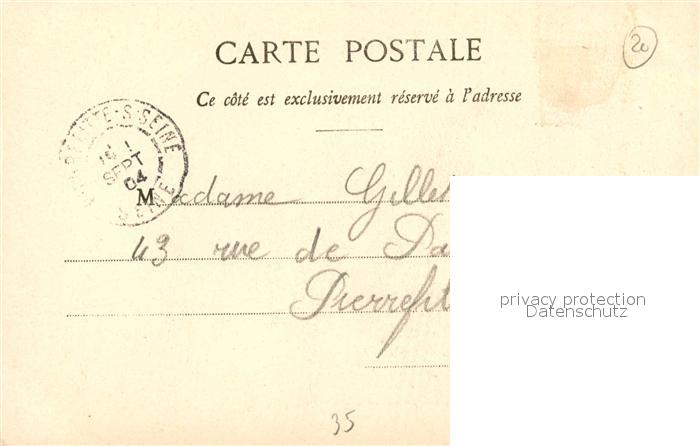 CARTE POSTALE
20
Ce côté est exclusivement réservé à l'adresse
PIERREFITTE-S-SEINE
SEPT
04
SEINE
Madame Gillet
43 rue de Pa
Pierrefit
privacy protection
Datenschutz
35